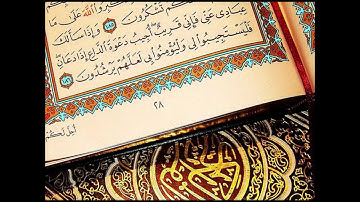 كَبِّرُوا۟ ٱللَّهَ عَلَىٰ مَا
كُمْ تَشْكُرُونَ ١٨٥ وَإِذَا سَأَلَكَ
عِبَادِى عَنِّى فَإِنِّى قَرِيبٌ أُجِيبُ دَعْوَةَ ٱلدَّاعِ إِذَا دَعَانِ
فَلْيَسْتَجِيبُوا۟ لِى وَلْيُؤْمِنُوا۟ بِى لَعَلَّهُمْ يَرْشُدُونَ ١٨٦
٢٨
أُحِلَّ لَكُمْ